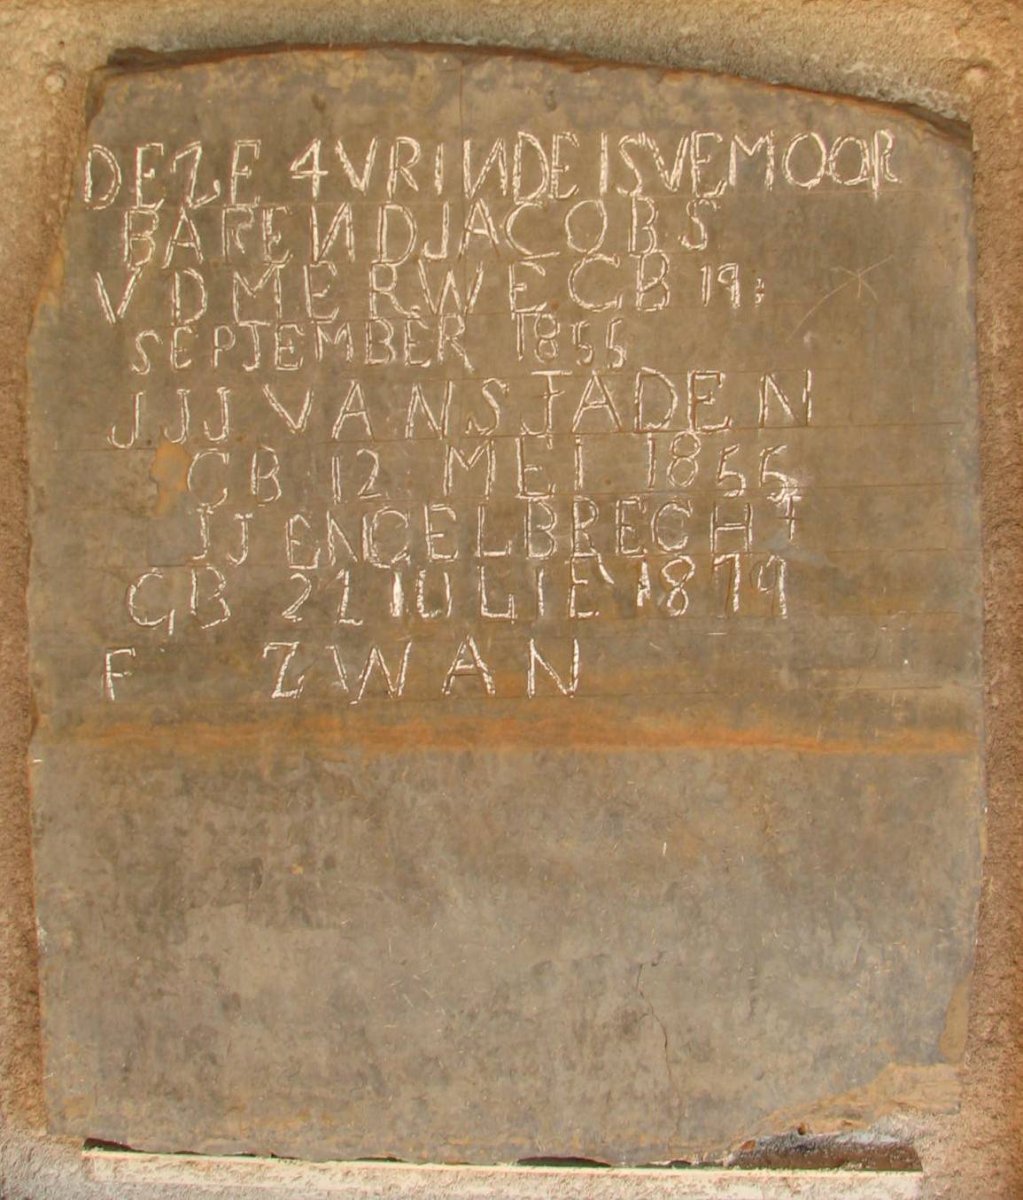 DEZE 4 VRINDE IS VEMOOR
BAREND JACOBS
V D MERWE GB 19:
SEPTEMBER 1855
JJJ VAN STADEN
GB 12 MEI 1855
JJ ENGELBRECHT
GB 21 IULIE 1879
F ZWAN